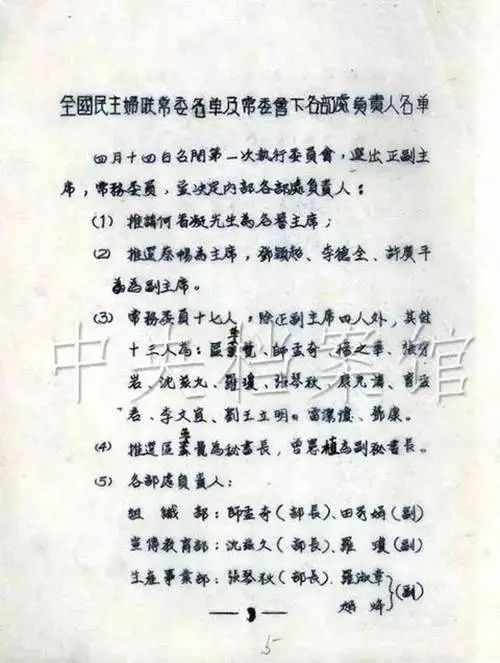 全國民主婦聯常委名單及常委會下各部處負責人名單
四月十四日召開第一次執行委員會，選出正副主
席，常務委員，並決定內部各部處負責人：
(1) 推請何香凝先生為名譽主席；
(2) 推選蔡暢為主席，鄧穎超、李德全、許廣平
為為副主席。
(3) 常務委員十七人：除正副主席四人外，其餘
十三人為：區夢覺、師孟奇、楊之華、張
岩、沈茲九、羅瓊、張琴秋、康克清、曹孟
君、李文宜、劉王立明、雷潔瓊、鄧康。
(4) 推選區夢覺為秘書長，曾憲植為副秘書長。
(5) 各部處負責人：
組織部：師孟奇（部長）、田秀娟（副）
宣傳教育部：沈茲久（部長）、羅瓊（副）
生產事業部：張琴秋（部長）、羅淑章
（副）
— 3 —
5
中央档案馆